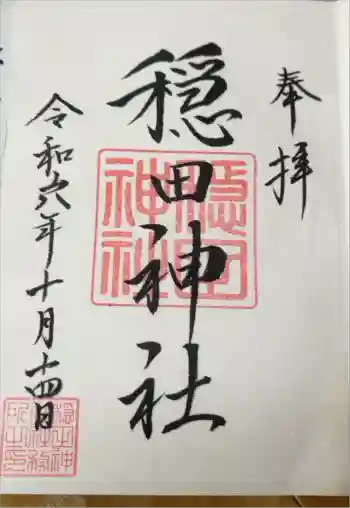 奉拝
穏田神社
令和六年十月十四日
穏田神社